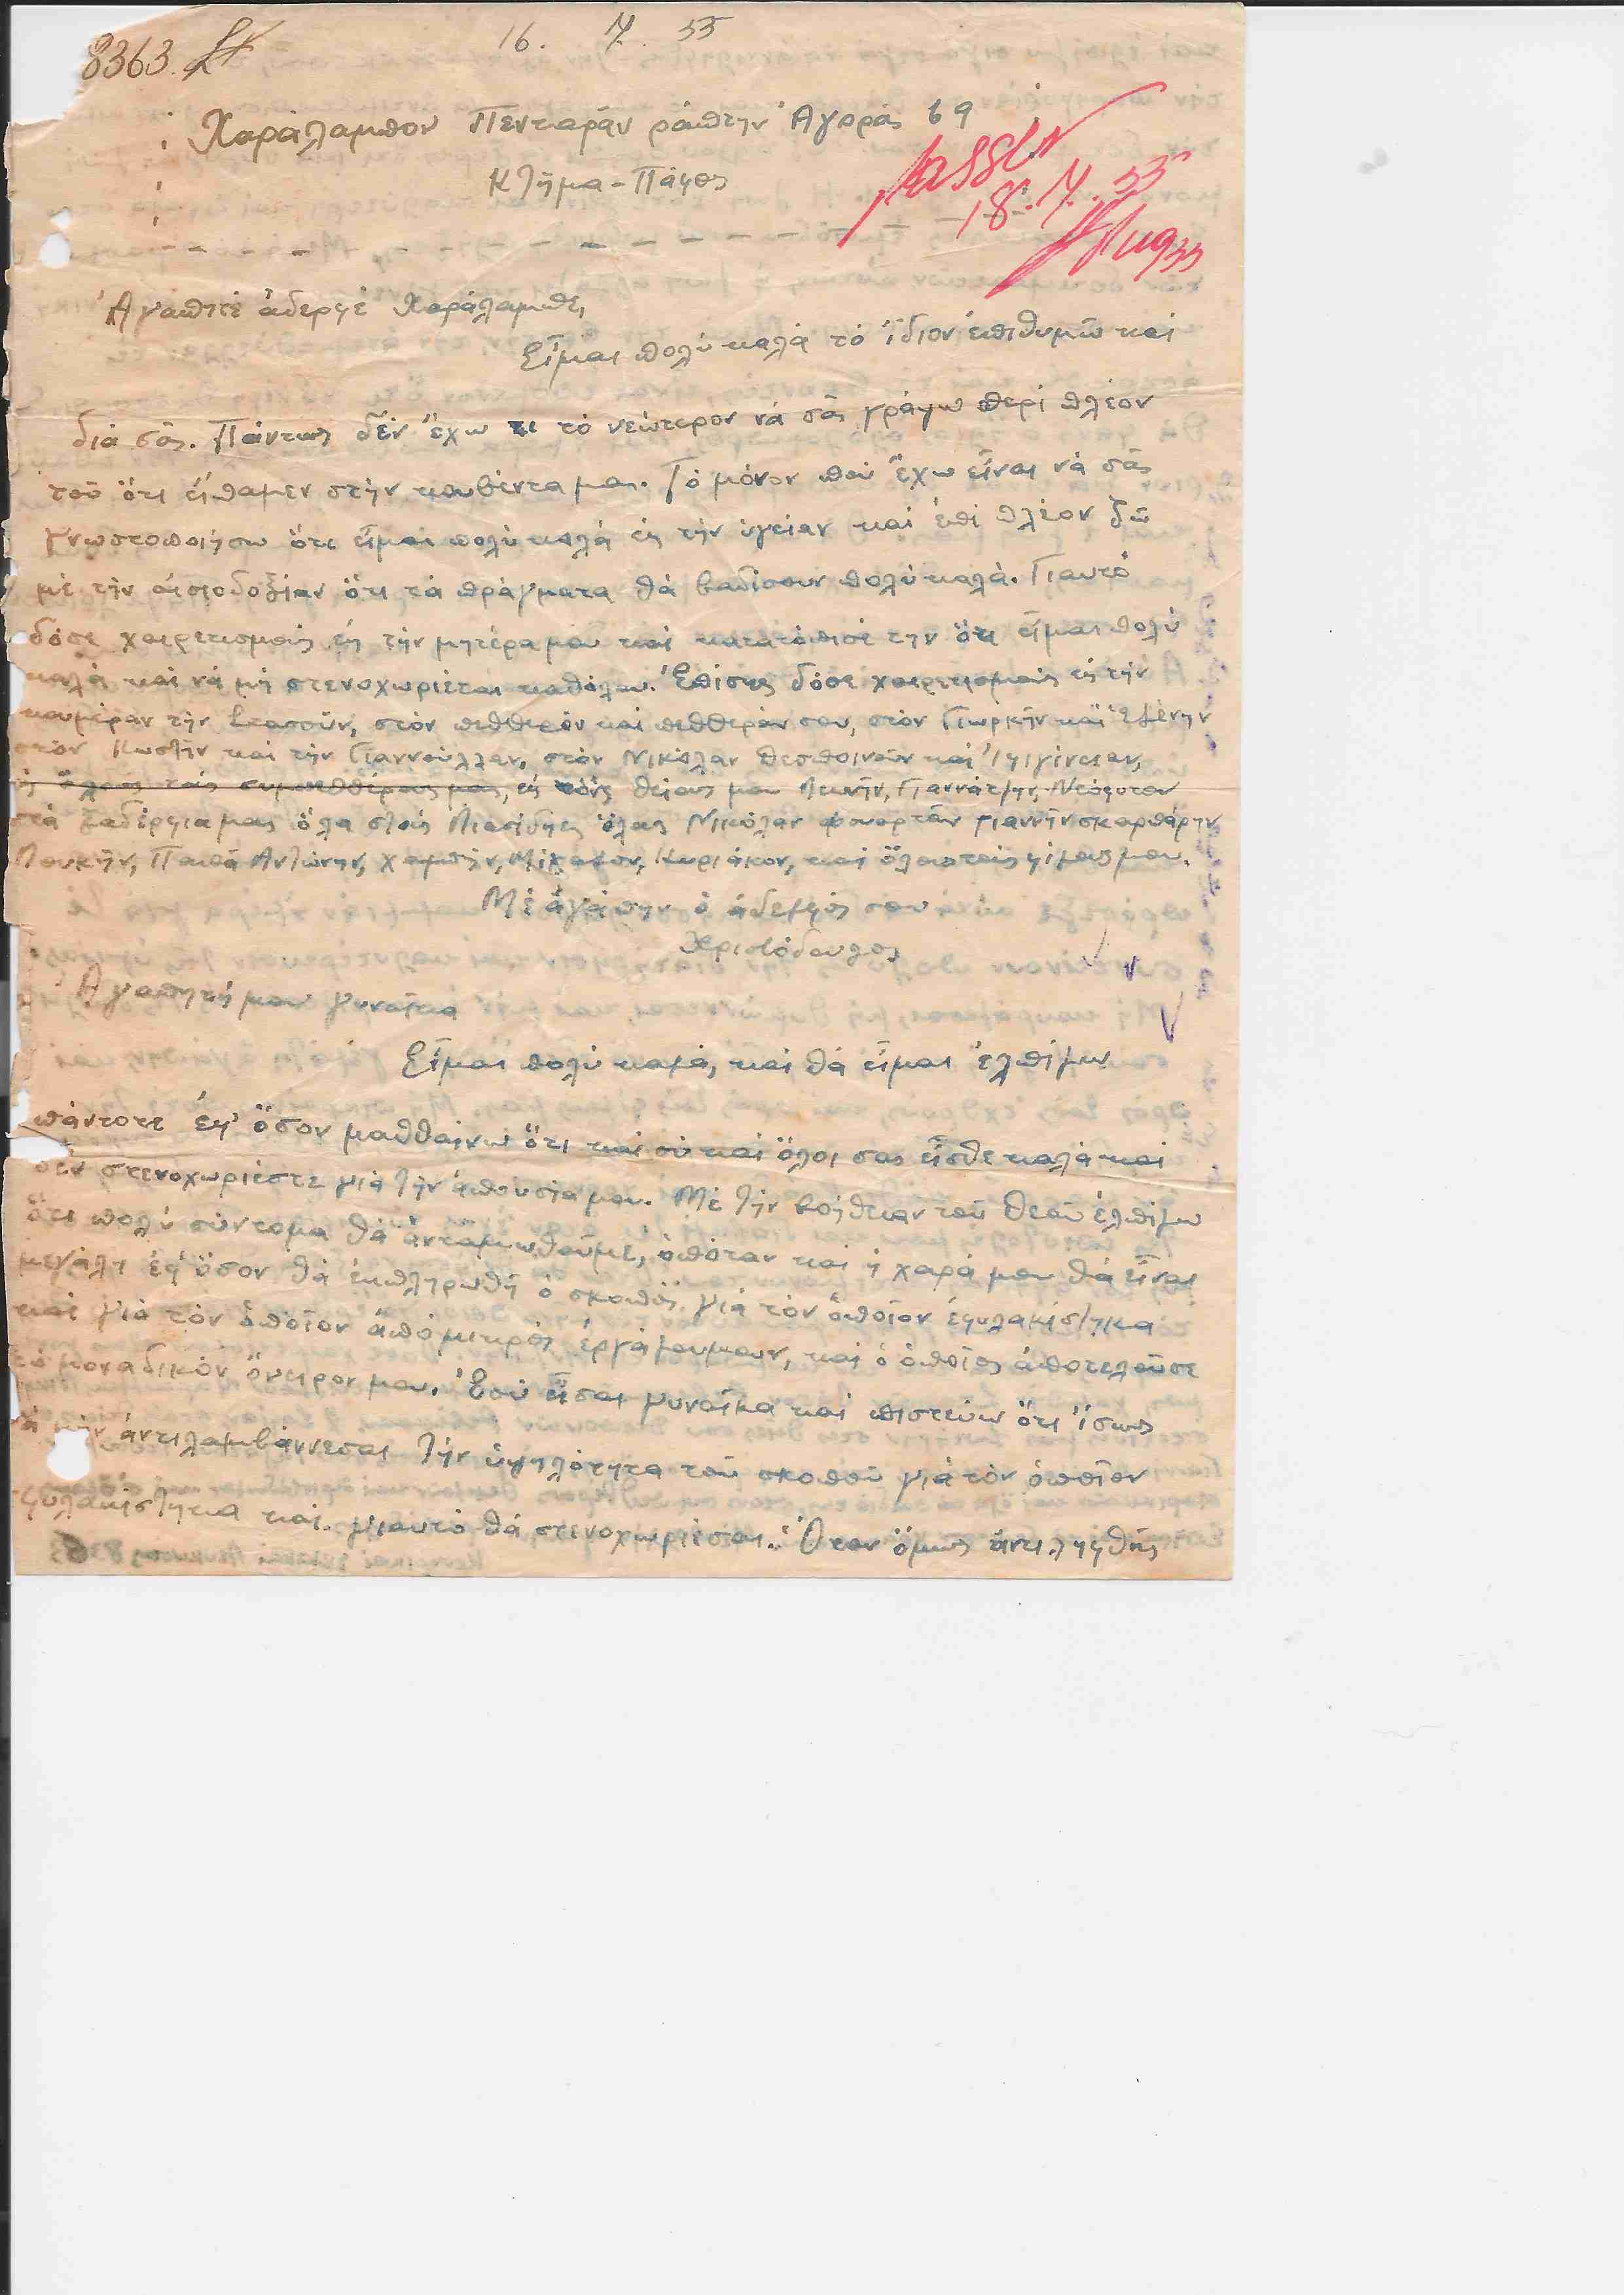 8363.
16. 7. 55
Χαράλαμπον Πενταράν ράπτην Ἀγορᾶς 69
Κτῆμα - Πάφος
Passed
18. 7. 55
Ἀγαπητέ ἀδερφέ Χαράλαμπε,
Εἶμαι πολύ καλά τό ἴδιον ἐπιθυμῶ καί
διά σᾶς. Πάντως δέν ἔχω τι τό νεώτερον νά σᾶς γράψω περί πλέον
τοῦ ὅτι εἴπαμεν στήν κουβέντα μας. Τό μόνον πού ἔχω εἶναι νά σᾶς
γνωστοποιήσω ὅτι εἶμαι πολύ καλά εἰς τήν ὑγείαν καί ἐπί πλέον ζῶ
μέ τήν αἰσιοδοξίαν ὅτι τά πράγματα θά βαδίσουν πολύ καλά. Γιαυτό
δόσε χαιρετισμούς εἰς τήν μητέρα μου καί κατατόπισέ την ὅτι εἶμαι πολύ
καλά καί νά μή στενοχωριέται καθόλου. Ἐπίσης δόσε χαιρετισμούς εἰς τήν
κουμέραν τήν Στασούν, στόν πεθθερόν καί πεθθεράν σου, στόν Γιωρκήν καί Ἑλένην
στόν Κωστήν καί τήν Γιαννούλλαν, στόν Νικόλαν Δεσποινούν καί Ἰφιγένειαν,
ὅλους τούς συμπεθθέρους μας, εἰς τούς θείους μου Γιαννάτζην, Νεόφυτον
στά ξαδέρφια μας ὅλα στούς Πιερίδηες ὅλους Νικόλαν φουρτάν Γιαννήν σκαρπάρην
Λουκῆν, Παπά Ἀντώνην, Χαμπήν, Μίχαλον, Κυριάκον, καί ὅλους τούς φίλους μου.
Μέ ἀγάπην ὁ ἀδελφός σου
Χριστόδουλος
Ἀγαπητή μου γυναίκα
Εἶμαι πολύ καλά, καί θά εἶμαι ἐλπίζω
πάντοτε ἐφ' ὅσον μαθθαίνω ὅτι καί σύ καί ὅλοι σας εἶσθε καλά καί
δέν στενοχωριέστε γιά τήν ἀπουσία μου. Μέ τήν βοήθειαν τοῦ Θεοῦ ἐλπίζω
ὅτι πολύ σύντομα θά ἀνταμωθοῦμε, ὁπόταν καί ἡ χαρά μου θά εἶναι
μεγάλη ἐφ' ὅσον θά ἐκπληρωθῆ ὁ σκοπός γιά τόν ὁποῖον ἐφυλακίστηκα
καί γιά τόν ὁποῖον ἀπό μικρός ἐργάζουμουν, καί ὁ ὁποῖος ἀποτελοῦσε
τό μοναδικόν ὄνειρον μου. Ἐσύ εἶσαι γυναίκα καί πιστεύω ὅτι ἴσως
ἀντιλαμβάννεσαι τήν ὑψηλότητα τοῦ σκοποῦ γιά τόν ὁποῖον
φυλακίστηκα καί γιαυτό θά στενοχωριέσαι. Ὅταν ὅμως ἀντιληφθῆς